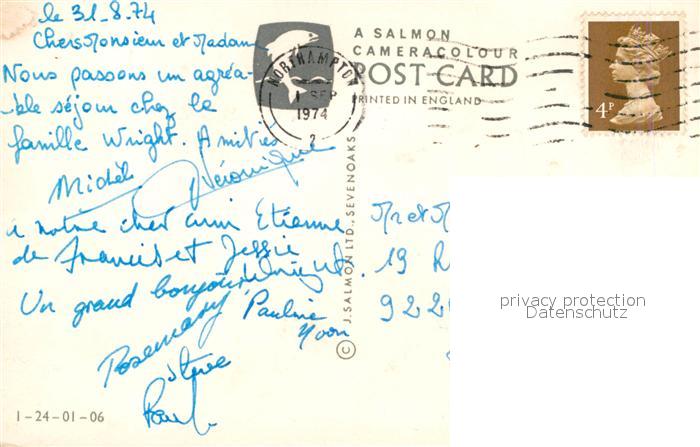 le 31.8.74
Chers Monsieur et Madame
Nous passons un agréa-
-ble séjour chez la
famille Wright. Amitiés
Michèle Véronique
A notre cher ami Etienne
de Francis et Jessie
Un grand bonjour
Rosemary Pauline
Yvon
Steve
Paul
1-24-01-06
A SALMON
CAMERACOLOUR
POST CARD
PRINTED IN ENGLAND
NORTHAMPTON
1 SEP
1974
2
4P
© J. SALMON LTD., SEVENOAKS
Mr et M
19 R
922
privacy protection
Datenschutz